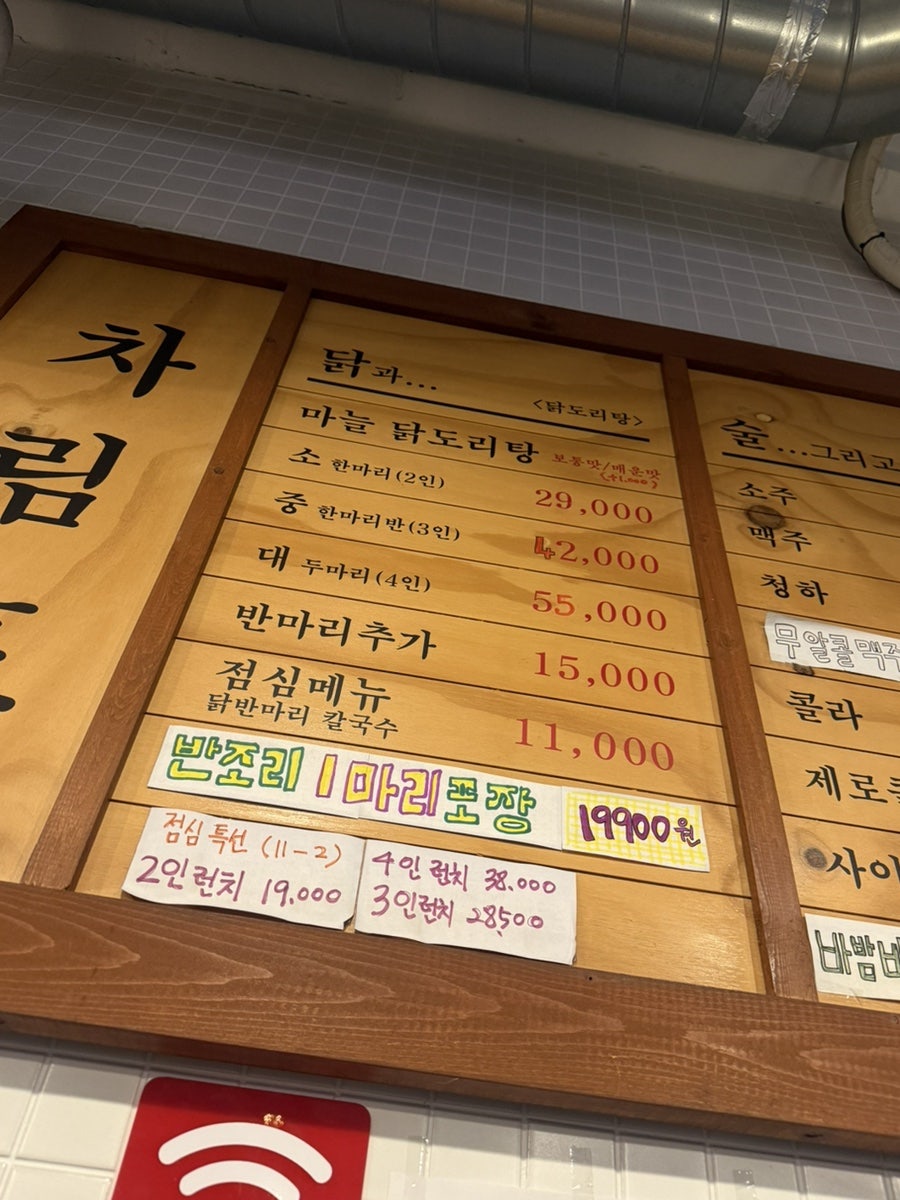 차
림
닭과...
<닭도리탕>
마늘 닭도리탕 보통맛/매운맛
소 한마리(2인) 29,000
중 한마리반(3인) 42,000
대 두마리(4인) 55,000
반마리추가 15,000
점심메뉴
닭반마리 칼국수 11,000
반조리 1마리포장 19900원
점심 특선 (11-2)
2인런치 19.000
4인 런치 38.000
3인런치 28,500
술...그리고
소주
맥주
청하
무알콜맥주
콜라
제로콜
사이
바밤바